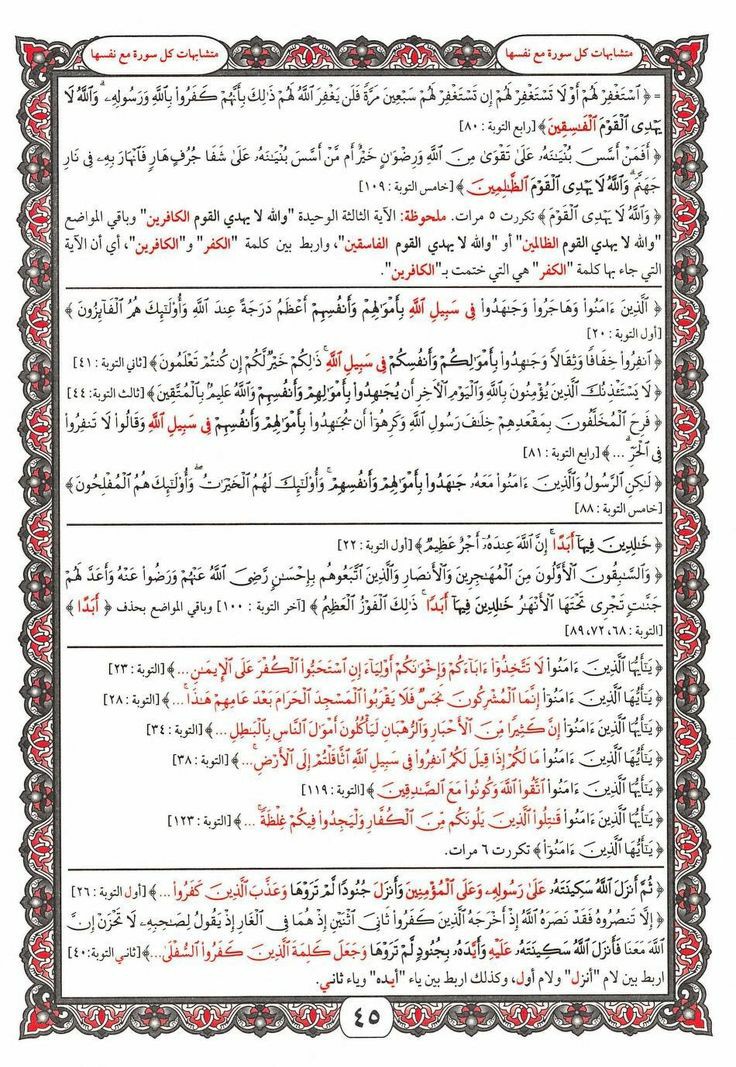 متشابهات كل سورة مع نفسها
متشابهات كل سورة مع نفسها
= ﴿ ٱسۡتَغۡفِرۡ لَهُمۡ أَوۡ لَا تَسۡتَغۡفِرۡ لَهُمۡ إِن تَسۡتَغۡفِرۡ لَهُمۡ سَبۡعِينَ مَرَّةٗ فَلَن يَغۡفِرَ ٱللَّهُ لَهُمۡۚ ذَٰلِكَ بِأَنَّهُمۡ كَفَرُواْ بِٱللَّهِ وَرَسُولِهِۦۗ وَٱللَّهُ لَا
يَهۡدِي ٱلۡقَوۡمَ ٱلۡفَٰسِقِينَ ﴾ [رابع التوبة : ٨٠]
﴿ أَفَمَنۡ أَسَّسَ بُنۡيَٰنَهُۥ عَلَىٰ تَقۡوَىٰ مِنَ ٱللَّهِ وَرِضۡوَٰنٍ خَيۡرٌ أَم مَّنۡ أَسَّسَ بُنۡيَٰنَهُۥ عَلَىٰ شَفَا جُرُفٍ هَارٖ فَٱنۡهَارَ بِهِۦ فِي نَارِ
جَهَنَّمَۗ وَٱللَّهُ لَا يَهۡدِي ٱلۡقَوۡمَ ٱلظَّٰلِمِينَ ﴾ [خامس التوبة : ١٠٩]
﴿ وَٱللَّهُ لَا يَهۡدِي ٱلۡقَوۡمَ ﴾ تكررت ٥ مرات. ملحوظة: الآية الثالثة الوحيدة "والله لا يهدي القوم الكافرين" وباقي المواضع
"والله لا يهدي القوم الظالمين" أو "والله لا يهدي القوم الفاسقين"، واربط بين كلمة "الكفر" و"الكافرين"، أي أن الآية
التي جاء بها كلمة "الكفر" هي التي ختمت بـ"الكافرين".
﴿ ٱلَّذِينَ ءَامَنُواْ وَهَاجَرُواْ وَجَٰهَدُواْ فِي سَبِيلِ ٱللَّهِ بِأَمۡوَٰلِهِمۡ وَأَنفُسِهِمۡ أَعۡظَمُ دَرَجَةً عِندَ ٱللَّهِۚ وَأُوْلَٰٓئِكَ هُمُ ٱلۡفَآئِزُونَ ﴾
[أول التوبة : ٢٠]
﴿ ٱنفِرُواْ خِفَافٗا وَثِقَالٗا وَجَٰهِدُواْ بِأَمۡوَٰلِكُمۡ وَأَنفُسِكُمۡ فِي سَبِيلِ ٱللَّهِۚ ذَٰلِكُمۡ خَيۡرٞ لَّكُمۡ إِن كُنتُمۡ تَعۡلَمُونَ ﴾ [ثاني التوبة : ٤١]
﴿ لَا يَسۡتَـٔۡذِنُكَ ٱلَّذِينَ يُؤۡمِنُونَ بِٱللَّهِ وَٱلۡيَوۡمِ ٱلۡأٓخِرِ أَن يُجَٰهِدُواْ بِأَمۡوَٰلِهِمۡ وَأَنفُسِهِمۡۗ وَٱللَّهُ عَلِيمُۢ بِٱلۡمُتَّقِينَ ﴾ [ثالث التوبة: ٤٤]
﴿ فَرِحَ ٱلۡمُخَلَّفُونَ بِمَقۡعَدِهِمۡ خِلَٰفَ رَسُولِ ٱللَّهِ وَكَرِهُوٓاْ أَن يُجَٰهِدُواْ بِأَمۡوَٰلِهِمۡ وَأَنفُسِهِمۡ فِي سَبِيلِ ٱللَّهِ وَقَالُواْ لَا تَنفِرُواْ
فِي ٱلۡحَرِّۗ ... ﴾ [رابع التوبة : ٨١]
﴿ لَٰكِنِ ٱلرَّسُولُ وَٱلَّذِينَ ءَامَنُواْ مَعَهُۥ جَٰهَدُواْ بِأَمۡوَٰلِهِمۡ وَأَنفُسِهِمۡۚ وَأُوْلَٰٓئِكَ لَهُمُ ٱلۡخَيۡرَٰتُۖ وَأُوْلَٰٓئِكَ هُمُ ٱلۡمُفۡلِحُونَ ﴾
[خامس التوبة : ٨٨]
﴿ خَٰلِدِينَ فِيهَآ أَبَدًاۚ إِنَّ ٱللَّهَ عِندَهُۥٓ أَجۡرٌ عَظِيمٞ ﴾ [أول التوبة : ٢٢]
﴿ وَٱلسَّٰبِقُونَ ٱلۡأَوَّلُونَ مِنَ ٱلۡمُهَٰجِرِينَ وَٱلۡأَنصَارِ وَٱلَّذِينَ ٱتَّبَعُوهُم بِإِحۡسَٰنٖ رَّضِيَ ٱللَّهُ عَنۡهُمۡ وَرَضُواْ عَنۡهُ وَأَعَدَّ لَهُمۡ
جَنَّٰتٖ تَجۡرِي تَحۡتَهَا ٱلۡأَنۡهَٰرُ خَٰلِدِينَ فِيهَآ أَبَدٗاۚ ذَٰلِكَ ٱلۡفَوۡزُ ٱلۡعَظِيمُ ﴾ [آخر التوبة : ١٠٠] وباقي المواضع بحذف ﴿ أَبَدٗا ﴾
[التوبة : ٦٨، ٧٢، ٨٩]
﴿ يَٰٓأَيُّهَا ٱلَّذِينَ ءَامَنُواْ لَا تَتَّخِذُوٓاْ ءَابَآءَكُمۡ وَإِخۡوَٰنَكُمۡ أَوۡلِيَآءَ إِنِ ٱسۡتَحَبُّواْ ٱلۡكُفۡرَ عَلَى ٱلۡإِيمَٰنِۚ ... ﴾ [التوبة : ٢٣]
﴿ يَٰٓأَيُّهَا ٱلَّذِينَ ءَامَنُوٓاْ إِنَّمَا ٱلۡمُشۡرِكُونَ نَجَسٞ فَلَا يَقۡرَبُواْ ٱلۡمَسۡجِدَ ٱلۡحَرَامَ بَعۡدَ عَامِهِمۡ هَٰذَاۚ ... ﴾ [التوبة : ٢٨]
﴿ يَٰٓأَيُّهَا ٱلَّذِينَ ءَامَنُوٓاْ إِنَّ كَثِيرٗا مِّنَ ٱلۡأَحۡبَارِ وَٱلرُّهۡبَانِ لَيَأۡكُلُونَ أَمۡوَٰلَ ٱلنَّاسِ بِٱلۡبَٰطِلِ ... ﴾ [التوبة : ٣٤]
﴿ يَٰٓأَيُّهَا ٱلَّذِينَ ءَامَنُواْ مَا لَكُمۡ إِذَا قِيلَ لَكُمُ ٱنفِرُواْ فِي سَبِيلِ ٱللَّهِ ٱثَّاقَلۡتُمۡ إِلَى ٱلۡأَرۡضِۚ ... ﴾ [التوبة : ٣٨]
﴿ يَٰٓأَيُّهَا ٱلَّذِينَ ءَامَنُواْ ٱتَّقُواْ ٱللَّهَ وَكُونُواْ مَعَ ٱلصَّٰدِقِينَ ﴾ [التوبة : ١١٩]
﴿ يَٰٓأَيُّهَا ٱلَّذِينَ ءَامَنُواْ قَٰتِلُواْ ٱلَّذِينَ يَلُونَكُم مِّنَ ٱلۡكُفَّارِ وَلۡيَجِدُواْ فِيكُمۡ غِلۡظَةٗۚ ... ﴾ [التوبة : ١٢٣]
﴿ يَٰٓأَيُّهَا ٱلَّذِينَ ءَامَنُوٓاْ ﴾ تكررت ٦ مرات.
﴿ ثُمَّ أَنزَلَ ٱللَّهُ سَكِينَتَهُۥ عَلَىٰ رَسُولِهِۦ وَعَلَى ٱلۡمُؤۡمِنِينَ وَأَنزَلَ جُنُودٗا لَّمۡ تَرَوۡهَا وَعَذَّبَ ٱلَّذِينَ كَفَرُواْۚ ... ﴾ [أول التوبة : ٢٦]
﴿ إِلَّا تَنصُرُوهُ فَقَدۡ نَصَرَهُ ٱللَّهُ إِذۡ أَخۡرَجَهُ ٱلَّذِينَ كَفَرُواْ ثَانِيَ ٱثۡنَيۡنِ إِذۡ هُمَا فِي ٱلۡغَارِ إِذۡ يَقُولُ لِصَٰحِبِهِۦ لَا تَحۡزَنۡ إِنَّ
ٱللَّهَ مَعَنَاۖ فَأَنزَلَ ٱللَّهُ سَكِينَتَهُۥ عَلَيۡهِ وَأَيَّدَهُۥ بِجُنُودٖ لَّمۡ تَرَوۡهَا وَجَعَلَ كَلِمَةَ ٱلَّذِينَ كَفَرُواْ ٱلسُّفۡلَىٰۗ ... ﴾ [ثاني التوبة: ٤٠]
اربط بين لام "أنزل" ولام أول، وكذلك اربط بين ياء "أيده" وياء ثاني.
٤٥